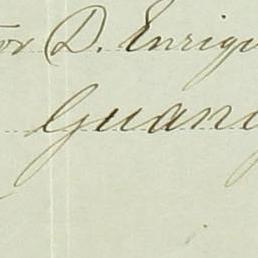 or D. Enriqu
Guan